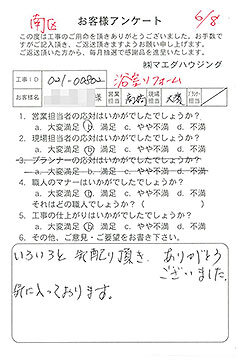 南区 お客様アンケート 6/8
この度は工事のご用命を頂きありがとうございました。お手数で
すがご記入頂き、ご返送頂きますようお願い申し上げます。
ご返送頂いた方から、毎月抽選で感謝品を進呈いたします。
㈱マエダハウジング
工事ID 001-00802 浴室リフォーム
お客様名 様 営業担当 高橋 現場担当 プランナー
1. 営業担当者の応対はいかがでしたでしょうか?
a. 大変満足 b. 満足 c. やや不満 d. 不満
2. 現場担当者の応対はいかがでしたでしょうか?
a. 大変満足 b. 満足 c. やや不満 d. 不満
3. プランナーの応対はいかがでしたでしょうか?
a. 大変満足 b. 満足 c. やや不満 d. 不満
4. 職人のマナーはいかがでしたでしょうか?
a. 大変満足 b. 満足 c. やや不満 d. 不満
それはどの職人でしょうか?( )
5. 工事の仕上がりはいかがでしたでしょうか?
a. 大変満足 b. 満足 c. やや不満 d. 不満
6. その他、ご意見・ご要望をお書き下さい。
いろいろと気配り頂き、ありがとう
ございました。
気に入っております。